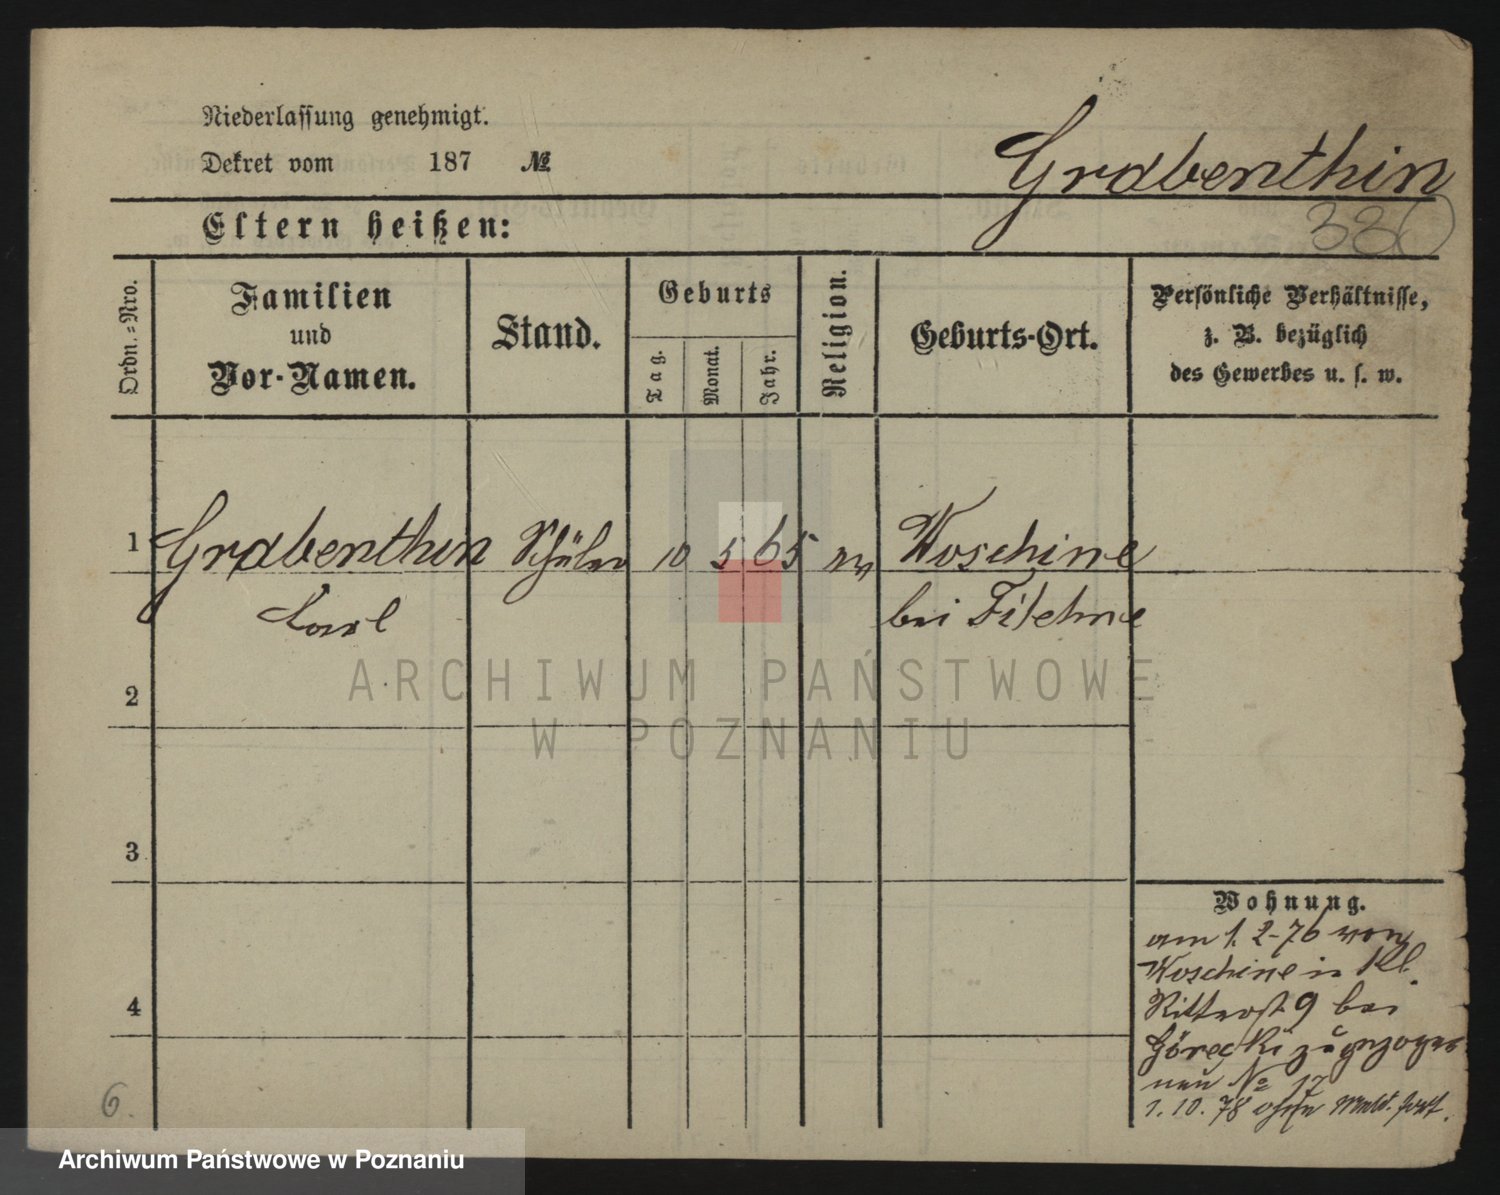 Niederlassung genehmigt.
Dekret vom 187 №
Grabenthin
Eltern heißen:
Ordn.-Nro.
Familien
und
Vor-Namen.
Stand.
Geburts
Tag.
Monat.
Jahr.
Religion.
Geburts-Ort.
Persönliche Verhältnisse,
z. B. bezüglich
des Gewerbes u. s. w.
1 Grabenthin Schüler 10 5 65 ev Woschine
Karl bei Filehne
2
3
4
Wohnung.
am 1. 2-76 von
Woschine in Kl.
Ritterst 9 bei
Górecki zugezogen
neu № 17
1. 10. 78 ohne Meld. fort.
6.
ARCHIWUM PAŃSTWOWE
W POZNANIU
Archiwum Państwowe w Poznaniu